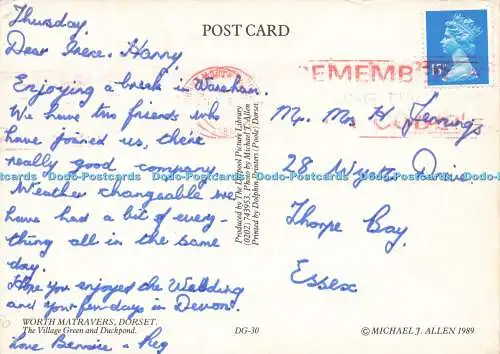 POST CARD
Thursday
Dear Irene. Harry
Enjoying a break in Wareham.
We have two friends who
have joined us, there
really good company.
Weather changeable we
have had a bit of every-
thing all in the same
day.
Hope you enjoyed the Wedding
and your few days in Devon.
Love Bernice & Reg
WORTH MATRAVERS, DORSET.
The Village Green and Duckpond.
Produced by The Liverpool Picture Library
(0202) 743953. Photo by Michael T. Allen
Printed by Dolphin Printers (Poole) Dorset.
REMEMB
Mr. Mrs H Jennings
28 Drive
Thorpe Bay.
Essex
DG-30
© MICHAEL J. ALLEN 1989
Dodo-Postcards Dodo-Postcards Dodo-Postcards Dodo-Postcards Dodo-Postcards